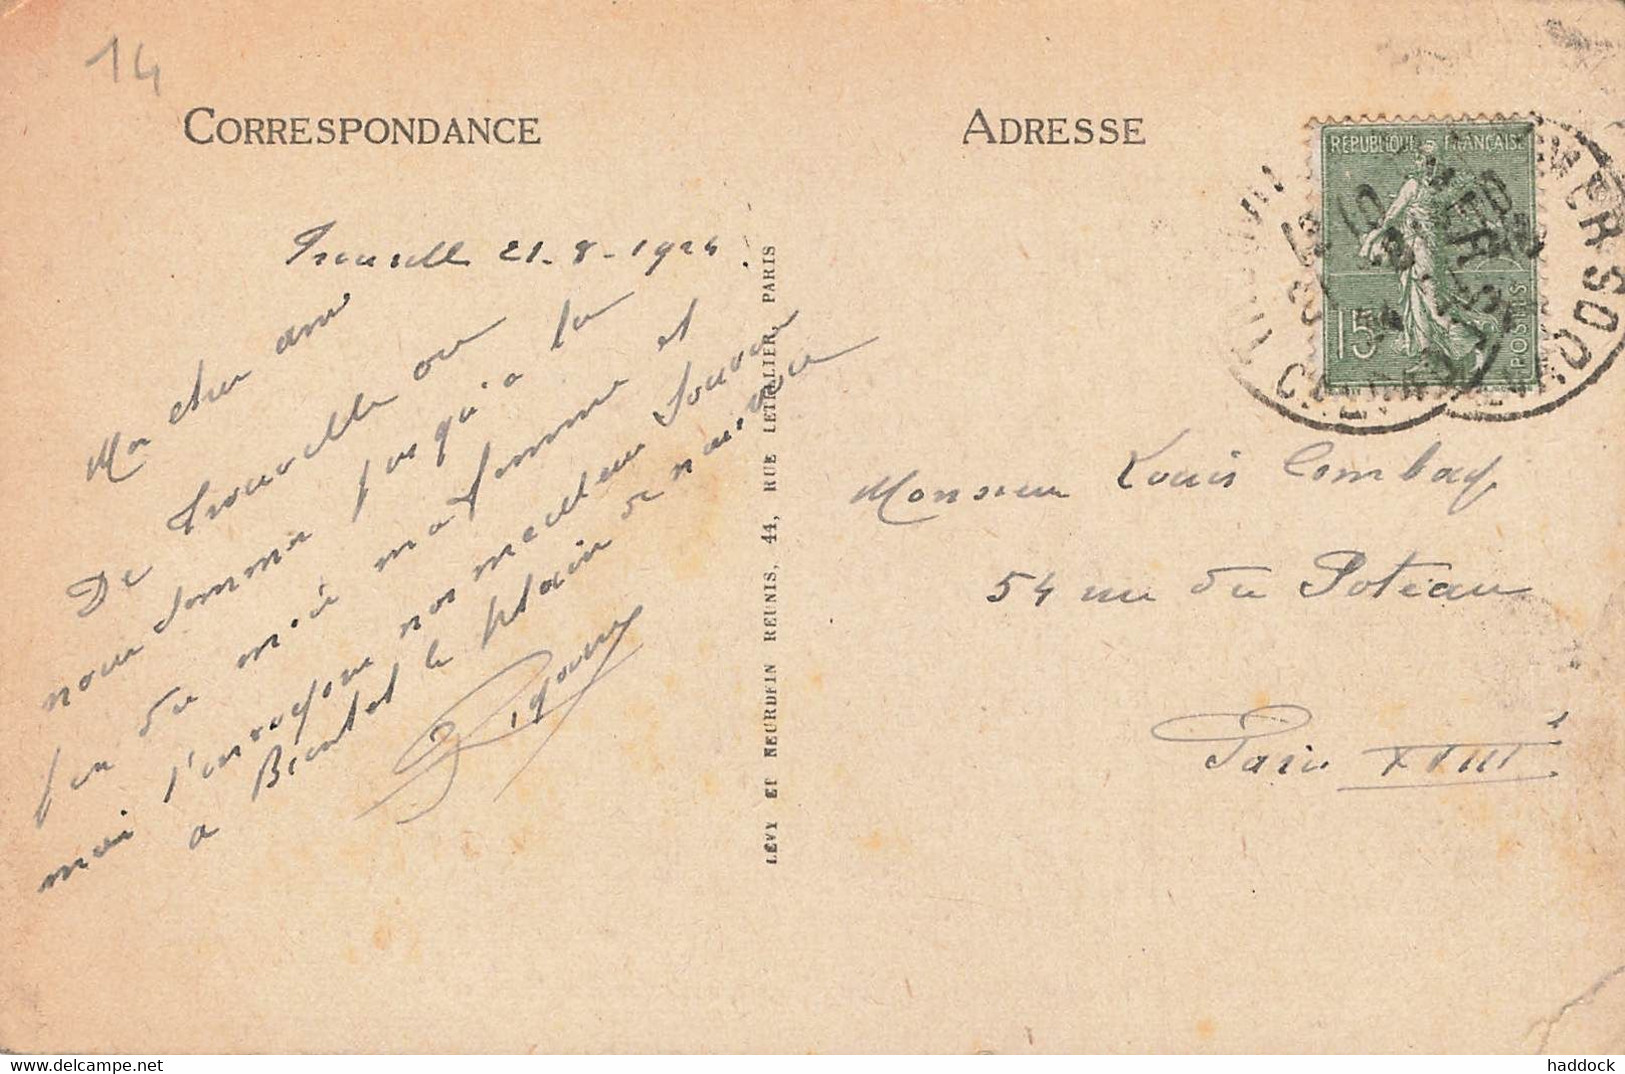 14
CORRESPONDANCE
ADRESSE
REPUBLIQUE FRANÇAISE
POSTES
15
CALVADOS
Trouville 21-8-1924.
Mon cher ami
De Trouville ou
nous sommes jusqu'a la
fin du mois ma femme et
moi t'envoyons nos meilleurs souvenirs
a Bientot le plaisir de
LÉVY ET NEURDEIN RÉUNIS, 44, RUE LETELLIER, PARIS
Monsieur Louis
54 rue du Poteau
Paris XVIIIe
haddock